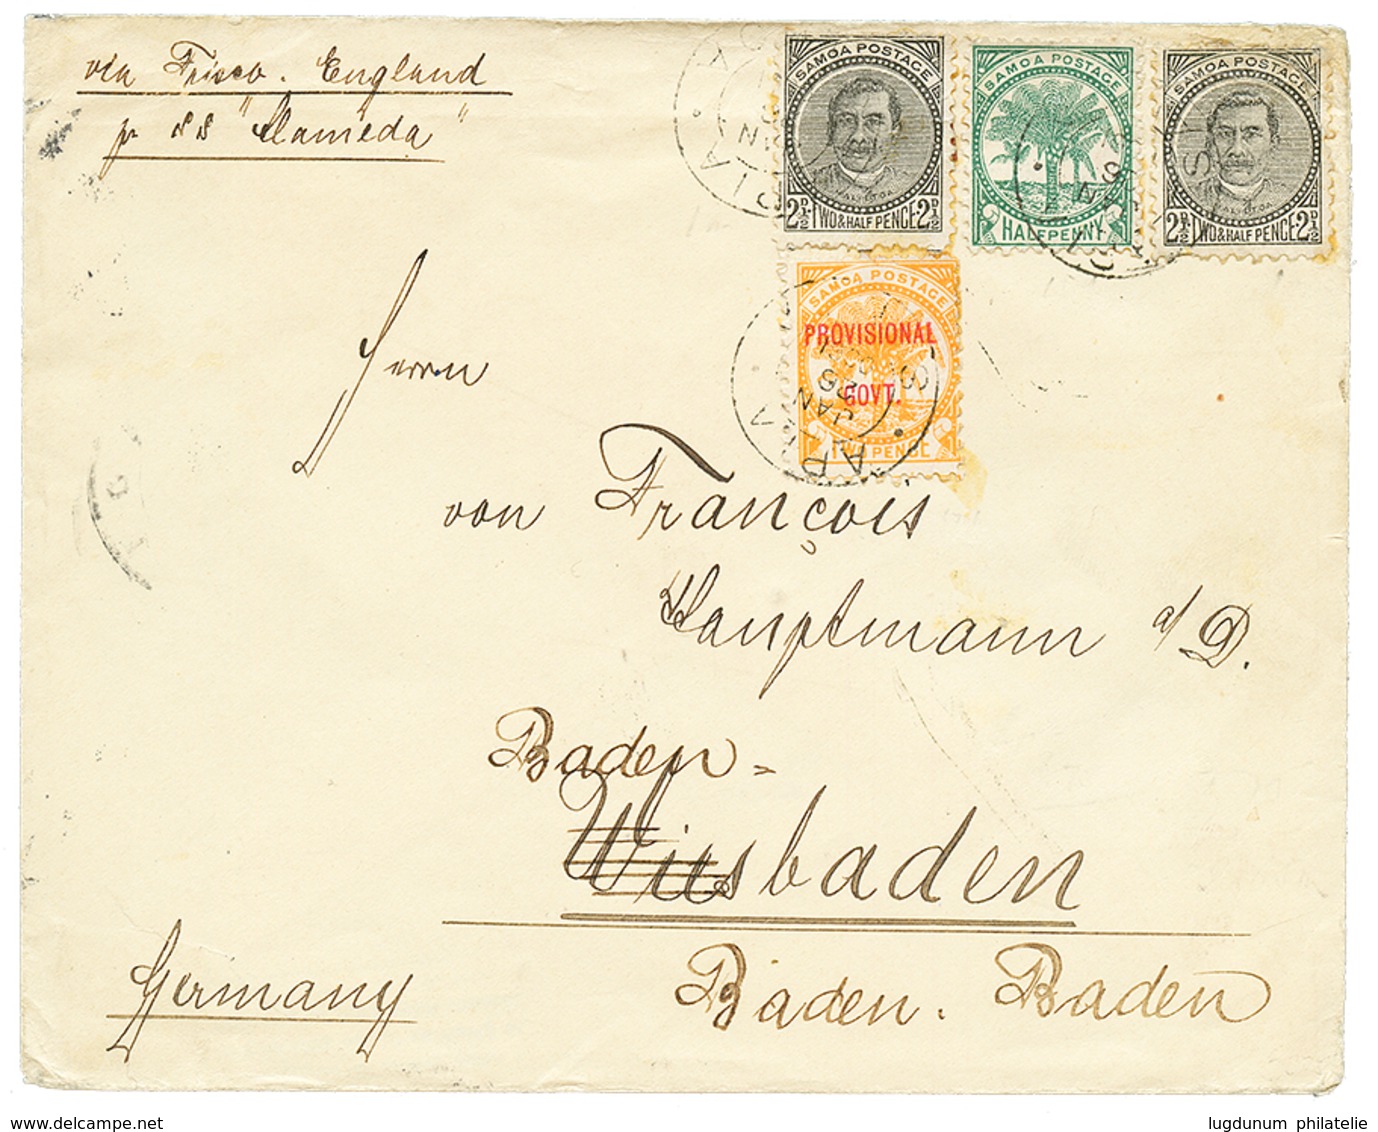 via Frisco. England
pr SS "Alameda"
SAMOA POSTAGE
2D½ TWO & HALF PENCE 2D½
SAMOA POSTAGE
HALFPENNY
SAMOA POSTAGE
2D½ TWO & HALF PENCE 2D½
SAMOA POSTAGE
PROVISIONAL
GOVT.
TWO PENCE
APIA
JAN
Herrn
von François
Hauptmann a/D.
Baden-
Wiesbaden
Germany
Baden. Baden
lugdunum philatelie